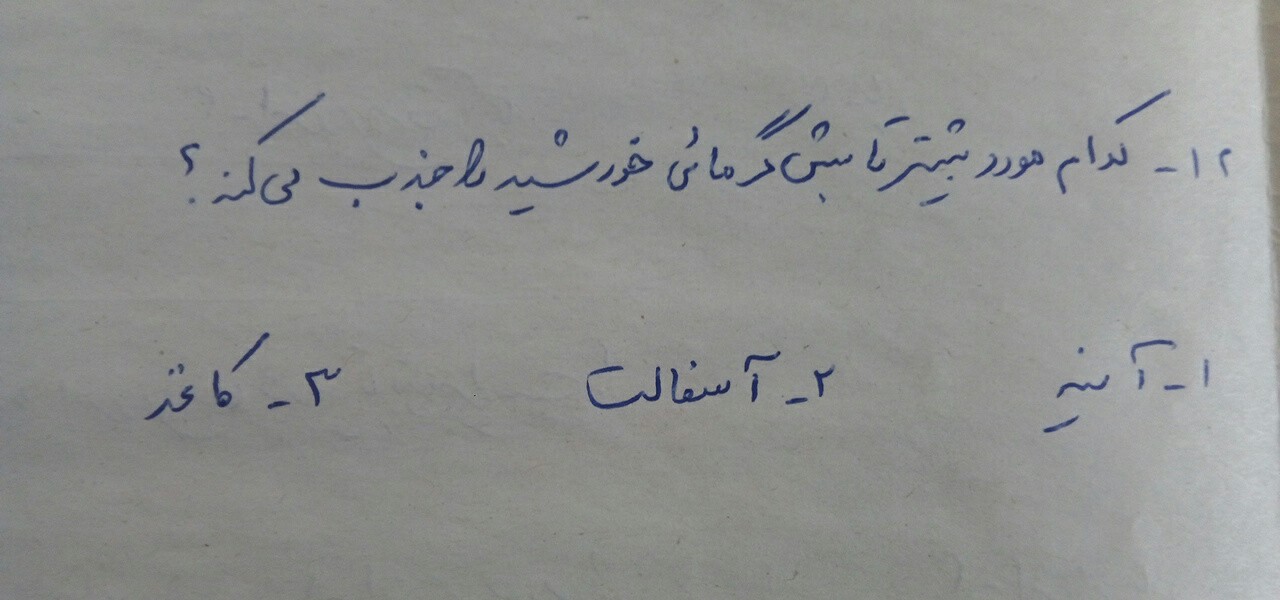 ۱۲- کدام مورد بیشتر تابش گرمائی خورشید را جذب می کند؟
۱- آینه ۲- آسفالت ۳- کاغذ